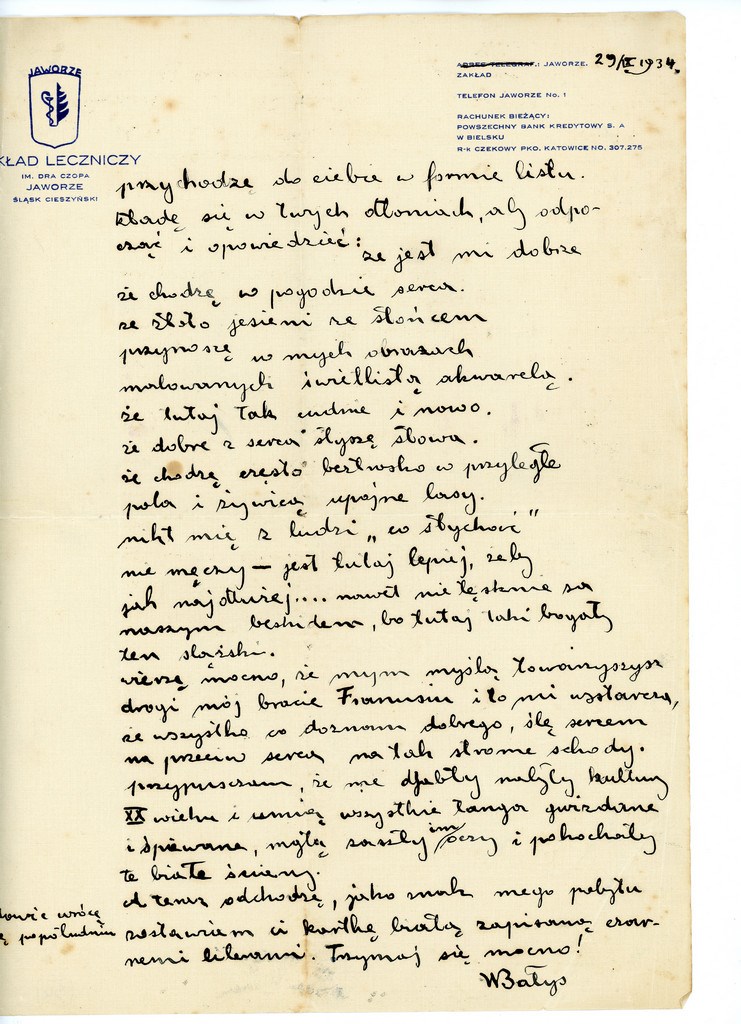 JAWORZE
KŁAD LECZNICZY
IM. DRA CZOPA
JAWORZE
ŚLĄSK CIESZYŃSKI
ADRES TELEGRAF.: JAWORZE.
ZAKŁAD
TELEFON JAWORZE No. 1
RACHUNEK BIEŻĄCY:
POWSZECHNY BANK KREDYTOWY S. A
W BIELSKU
R-k CZEKOWY PKO. KATOWICE NO. 307.275
29/IX 1934.
przychodzę do ciebie w formie listu.
kładę się w twych dłoniach, aby odpo-
cząć i opowiedzieć:
że jest mi dobrze
że chodzę w pogodzie serca.
że złoto jesieni ze słońcem
przynoszę w mych obrazach
malowanych świetlistą akwarelą.
że tutaj tak cudnie i nowo.
że dobre z serca słyszę słowa.
że chodzę często beztrosko w przyległe
pola i żywicą upojne lasy.
nikt mię z ludzi „co słychać"
nie męczy — jest tutaj lepiej, żeby
jak najdłużej.... nawet nie tęsknię za
naszym beskidem, bo tutaj taki bogaty
ten śląski.
wierzę mocno, że mym myślą towarzyszysz
drogi mój bracie Franusiu i to mi wystarcza,
że wszystko co doznam dobrego, ślę sercem
na przeciw serca na tak strome schody.
przypuszczam, że nie djabły nabyły kultury
XX wieku i umią wszystkie tanga gwizdane
i śpiewane, mgłą zaszły im oczy i pokochały
te białe ściany.
a teraz odchodzę, jako znak mego pobytu
zostawiam ci kartkę białą zapisaną czar-
nemi literami. Trzymaj się mocno!
WBałys
wrócę
popołudniu